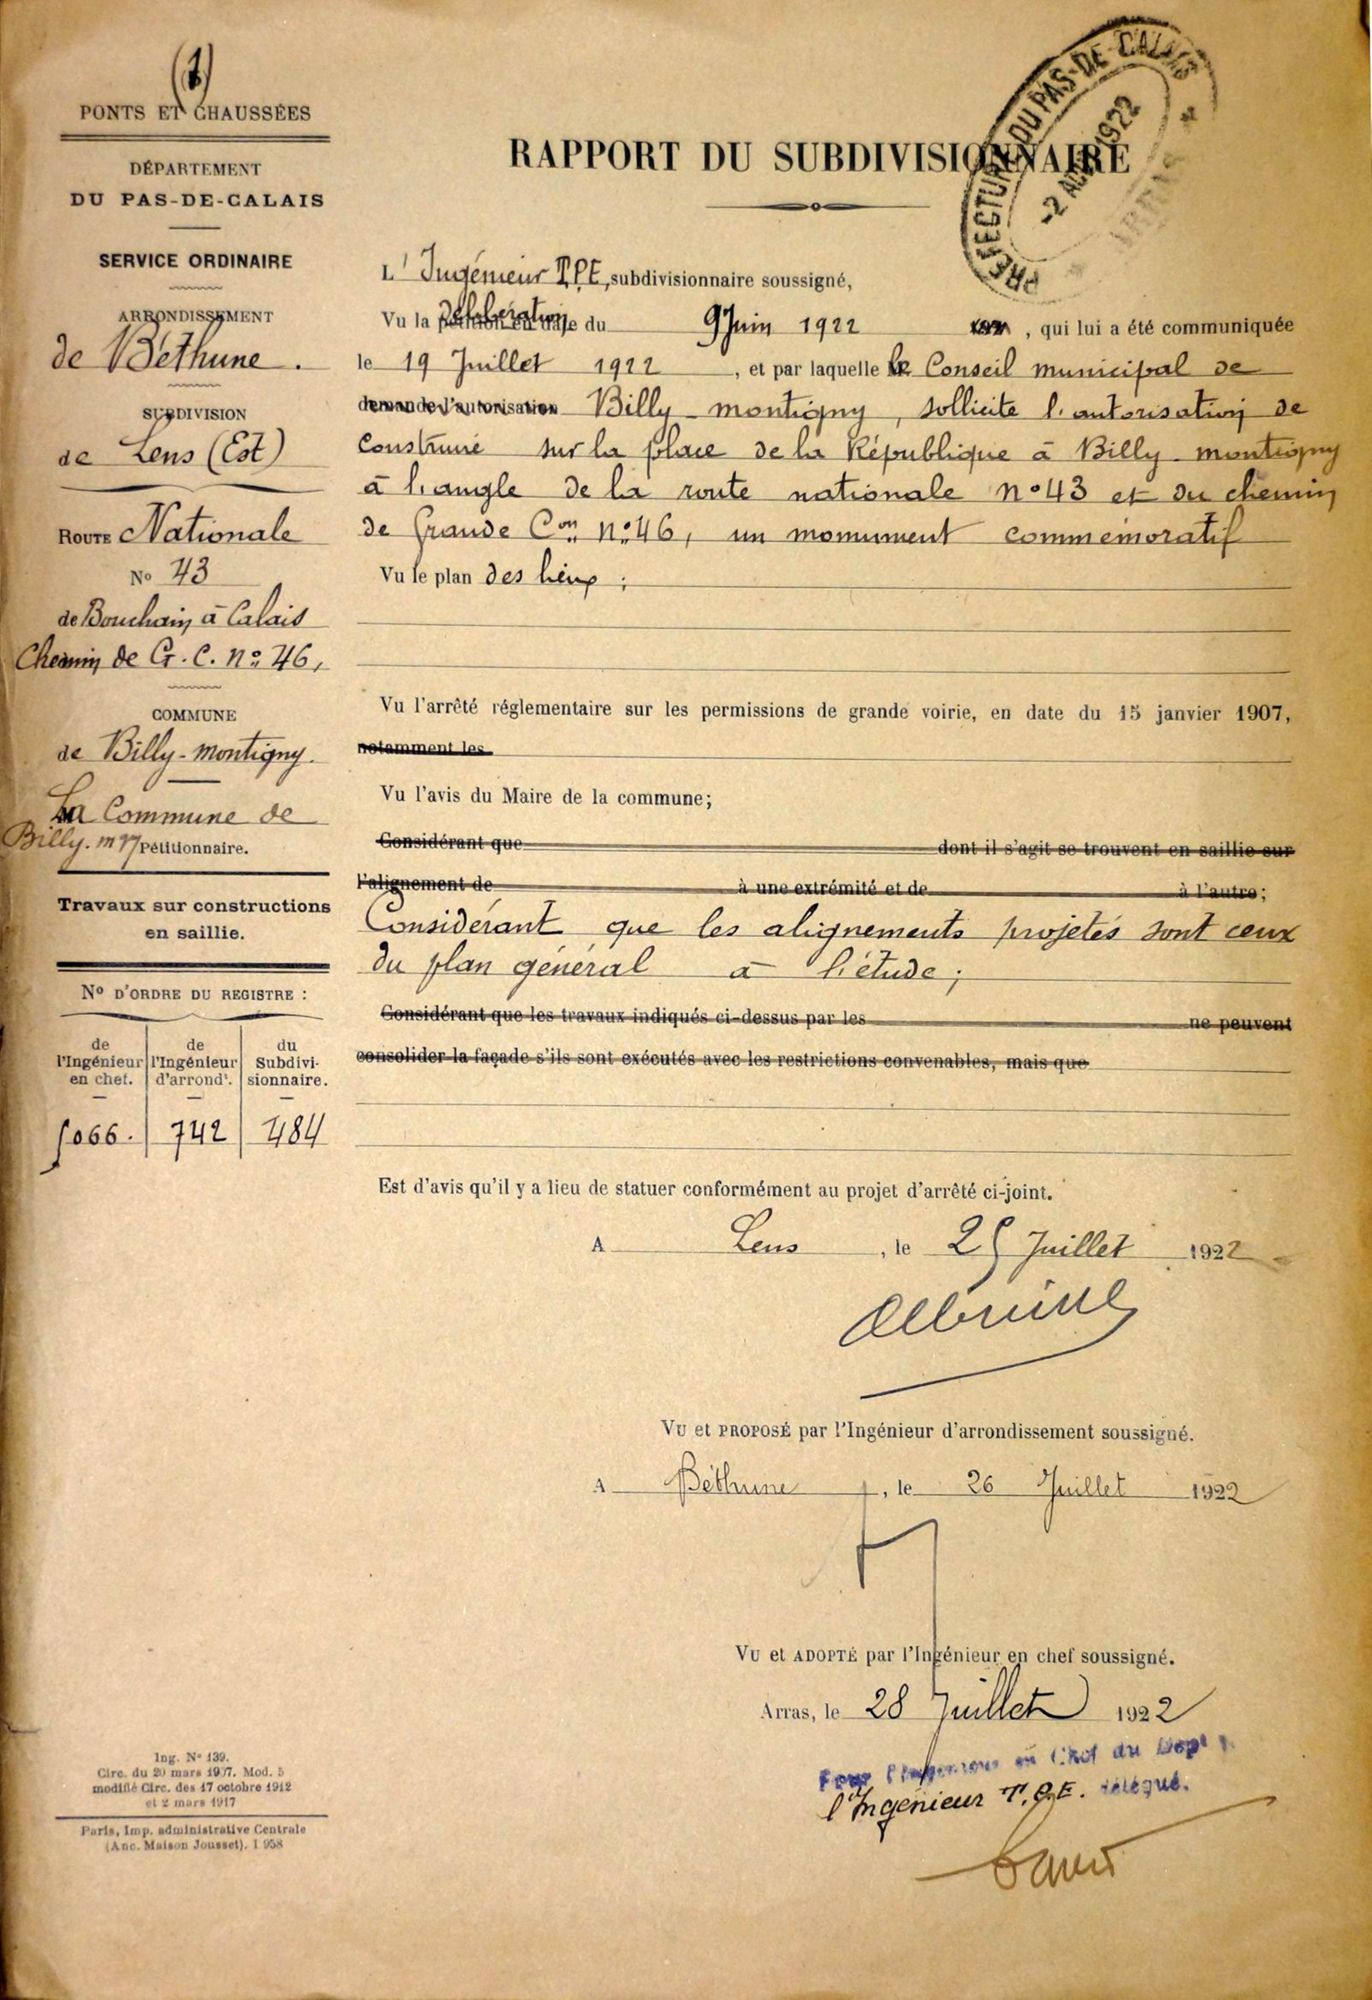 (1)
PONTS ET CHAUSSÉES
DÉPARTEMENT
DU PAS-DE-CALAIS
SERVICE ORDINAIRE
ARRONDISSEMENT
de Béthune.
SUBDIVISION
de Lens (Est)
ROUTE Nationale
No 43
de Bouchain à Calais
Chemin de G. C. No 46,
COMMUNE
de Billy-montigny.
La Commune de
Billy. my Pétitionnaire.
Travaux sur constructions
en saillie.
No D'ORDRE DU REGISTRE :
de l'Ingénieur en chef.
de l'Ingénieur d'arrondt.
du Subdivisionnaire.
5066. 742 484
Ing. No 139.
Circ. du 20 mars 1907. Mod. 5
modifié Circ. des 17 octobre 1912
et 2 mars 1917
Paris, Imp. administrative Centrale
(Anc. Maison Jousset). I 958
PRÉFECTURE DU PAS-DE-CALAIS
-2 AOUT 1922
ARRAS
RAPPORT DU SUBDIVISIONNAIRE
L'Ingénieur T.P.E, subdivisionnaire soussigné,
Vu la pétition en date délibération du 9 Juin 1922, qui lui a été communiquée
le 19 Juillet 1922, et par laquelle le Conseil municipal de
demande l'autorisation Billy-montigny, sollicite l'autorisation de
construire sur la place de la République à Billy-montigny
à l'angle de la route nationale no 43 et du chemin
de Grande Con no 46, un monument commémoratif
Vu le plan des lieux ;
Vu l'arrêté réglementaire sur les permissions de grande voirie, en date du 15 janvier 1907,
notamment les
Vu l'avis du Maire de la commune;
Considérant que dont il s'agit se trouvent en saillie sur
l'alignement de à une extrémité et de à l'autre;
Considérant que les alignements projetés sont ceux
du plan général à l'étude;
Considérant que les travaux indiqués ci-dessus par les ne peuvent
consolider la façade s'ils sont exécutés avec les restrictions convenables, mais que
Est d'avis qu'il y a lieu de statuer conformément au projet d'arrêté ci-joint.
A Lens, le 25 Juillet 1922
VU et PROPOSÉ par l'Ingénieur d'arrondissement soussigné.
A Béthune, le 26 Juillet 1922
VU et ADOPTÉ par l'Ingénieur en chef soussigné.
Arras, le 28 Juillet 1922
Pour l'Ingénieur en Chef du Dept
l'Ingénieur T.P.E. délégué.